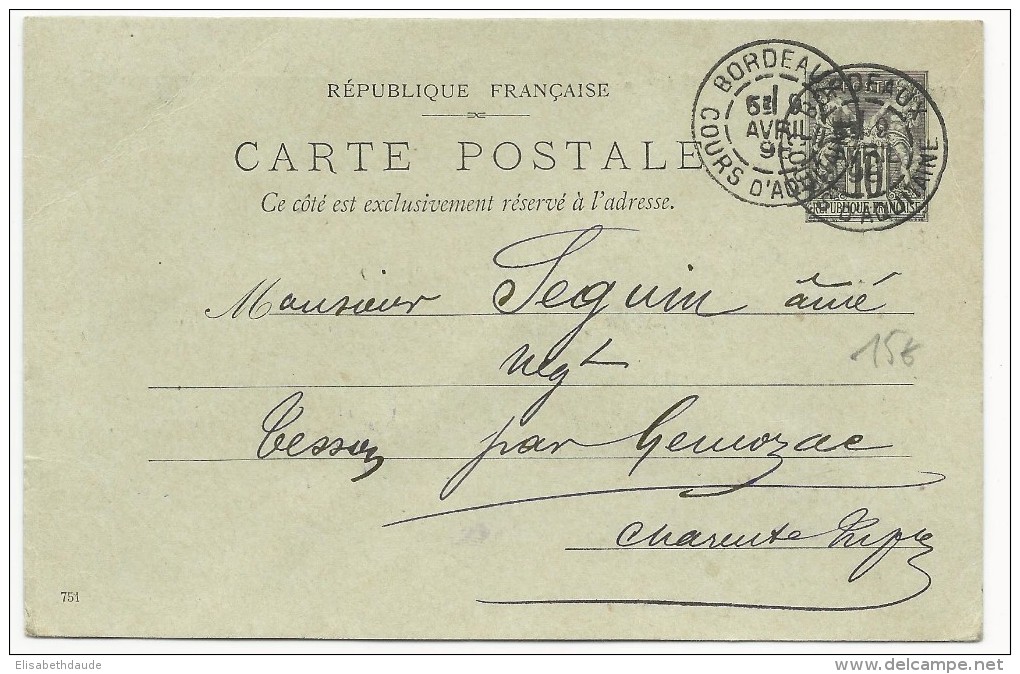 RÉPUBLIQUE FRANÇAISE
CARTE POSTALE
Ce côté est exclusivement réservé à l'adresse.
BORDEAUX
COURS D'AQUITAINE
AVRIL
BORDEAUX
D'AQUITAINE
10
RÉPUBLIQUE FRANÇAISE
Monsieur Seguin aîné
negt
15€
Tesson par Gemozac
Charente Infre
751
Elisabethdaude
delcampe.net